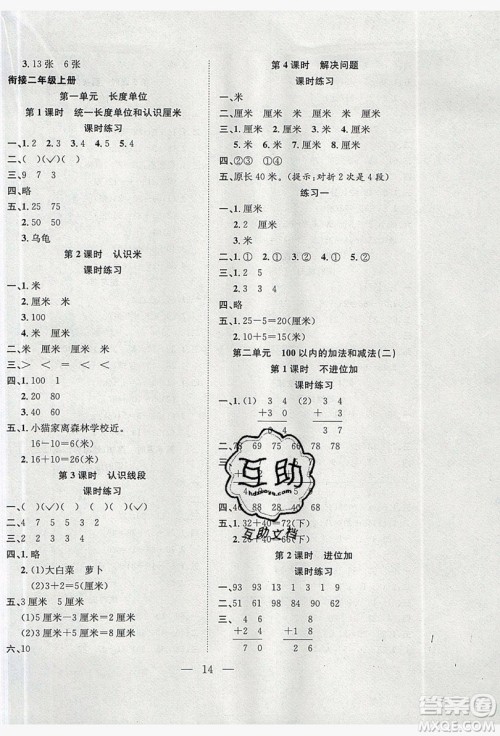 3. 13张 6张
衔接二年级上册
第一单元 长度单位
第1课时 统一长度单位和认识厘米
课时练习
一、1. 2 2. 3 3. 4 4. 5 5. 4
二、( )(✓)( )(✓)
三、9 7 3
四、略
五、1. 25 75
2. 50
3. 乌龟
第2课时 认识米
课时练习
一、1. 米
2. 厘米 米
3. 100
二、米 厘米 米 厘米
三、> < = >
四、1. 100 1
2. 略
五、1. 小猫家离森林学校近。
16-10=6(米)
2. 16+10=26(米)
第3课时 认识线段
课时练习
一、(✓)( )( )(✓)
二、4 7 5 5 3
三、略
四、1. 略
2. (1)大白菜 萝卜
(2)3+2=5(厘米)
五、3厘米 5厘米
(1)5厘米-3厘米=2厘米
(2)5厘米+3厘米=8厘米
六、10
第4课时 解决问题
课时练习
一、米
二、厘米 厘米 米 米 厘米
三、略
四、②③ ①④
五、原长40米。(提示:对折2次是4段)
练习一
一、1. 厘米
2. 厘米 米
3. 厘米 厘米 米
二、1. ① 2. ① 3. ① 4. ②
三、1 2 5
四、略
五、1. 25-5=20(厘米)
2. 10+5=15(厘米)
第二单元 100以内的加法和减法(二)
第1课时 不进位加
课时练习
一、1. (1) 3 4 (2) 3 4
+ 3 0 + 3
6 4
二、78
四、 68 90 88
五、32+40=72(下)
第2课时 进位加
课时练习
一、93 93 31 91
二、51 61 82 64
三、 3 8 6 7
+ 2 3 + 2 4
6 1 9 1
14
互助
hdzuoye.com
互助文档
作业帮
www.MXQE.com